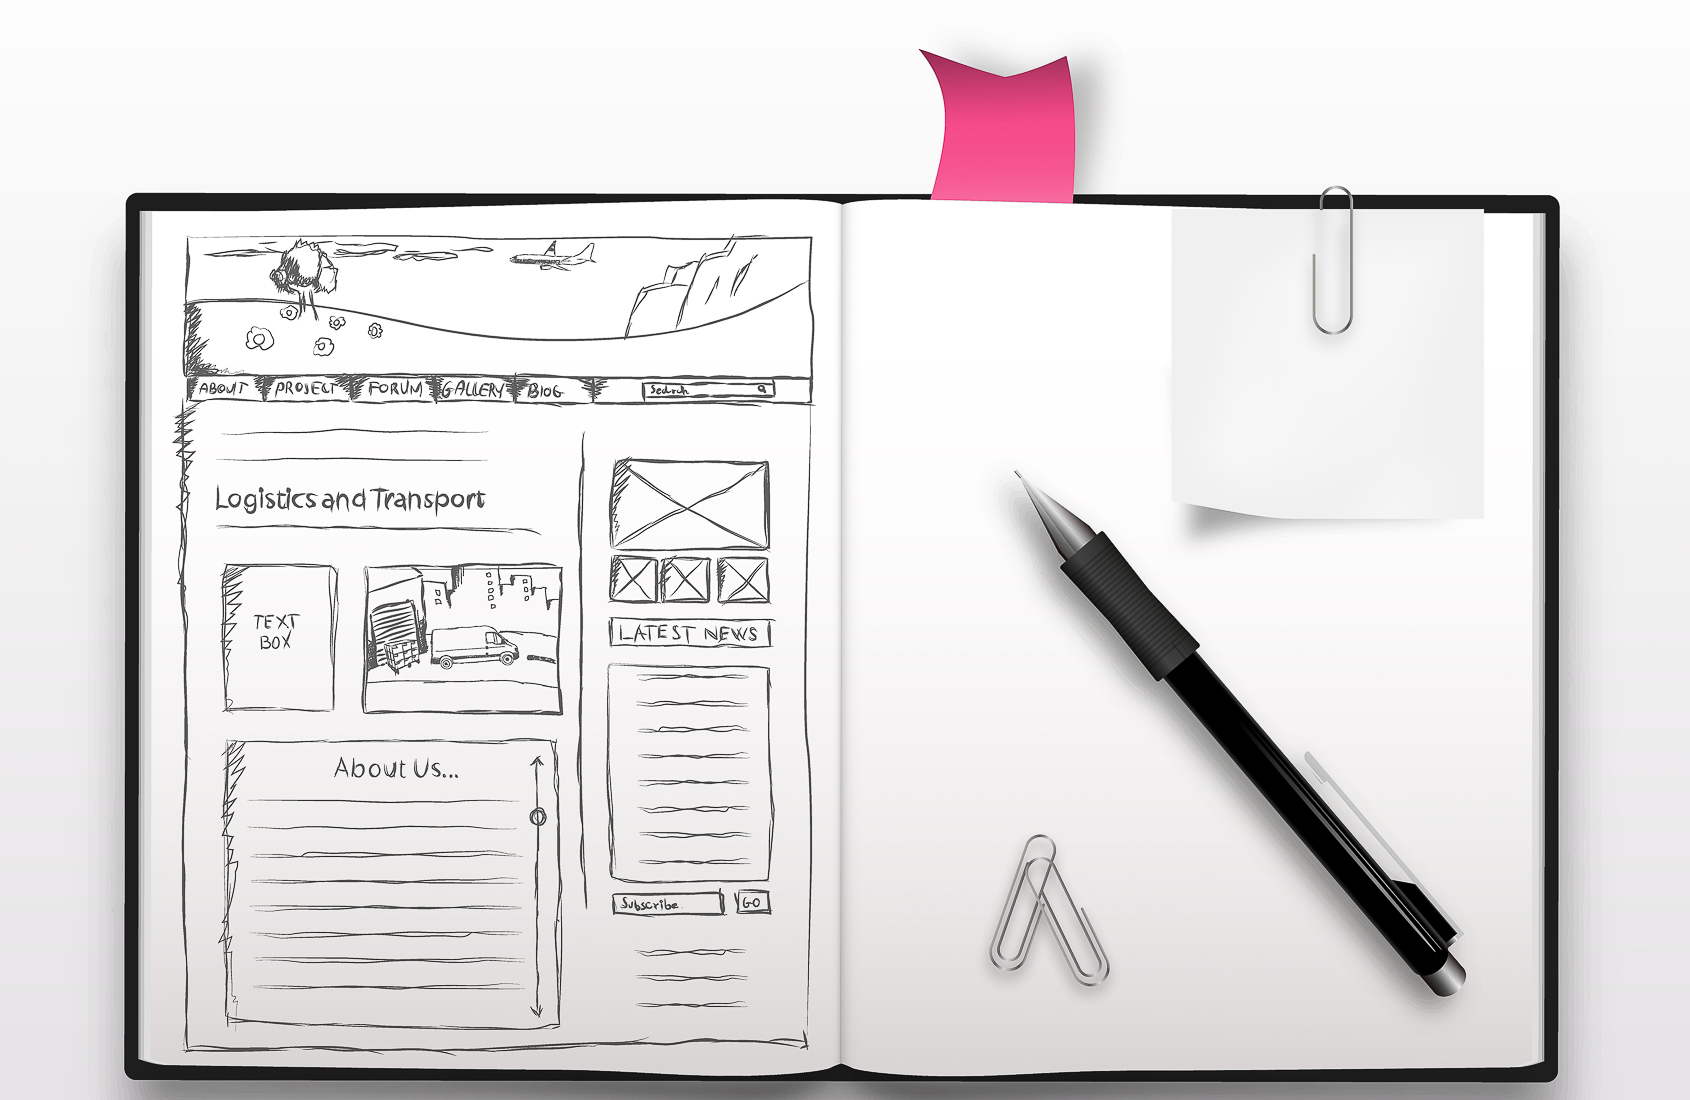 ABOUT PROJECT FORUM GALLERY BLOG Search
Logistics and Transport
TEXT
BOX
LATEST NEWS
About Us...
Subscribe GO